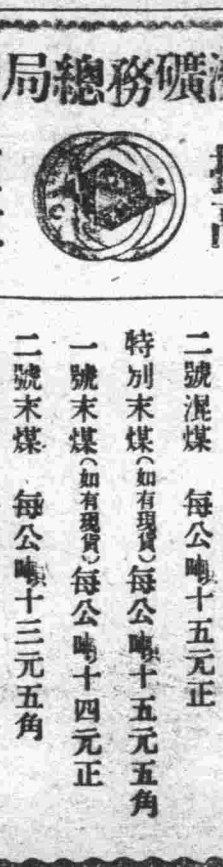 礦務總局
二號混煤　每公噸十五元正
特別末煤（如有現貨）每公噸十五元五角
一號末煤（如有現貨）每公噸十四元正
二號末煤　每公噸十三元五角